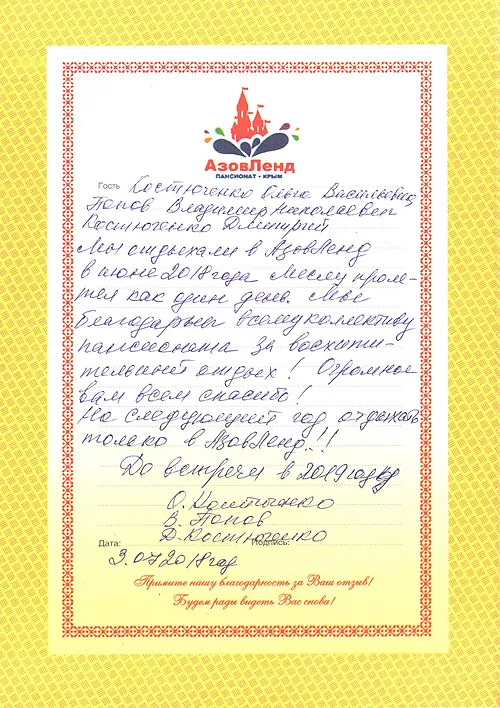 АзовЛенд
ПАНСИОНАТ • КРЫМ
Гость Костюченко Ольга Васильевна
Попов Владимир Николаевич
Костюченко Дмитрий
Мы отдыхали в АзовЛенд
в июне 2018 года Месяц проле-
тел как один день. Мы
благодарны всему коллективу
пансионата за восхити-
тельный отдых! Огромное
вам всем спасибо!
На следующий год отдыхать
только в АзовЛенд!!!
До встречи в 2019 году
О. Костюченко
В. Попов
Д. Костюченко
Дата: Подпись:
3.07 2018 год
Примите нашу благодарность за Ваш отзыв!
Будем рады видеть Вас снова!